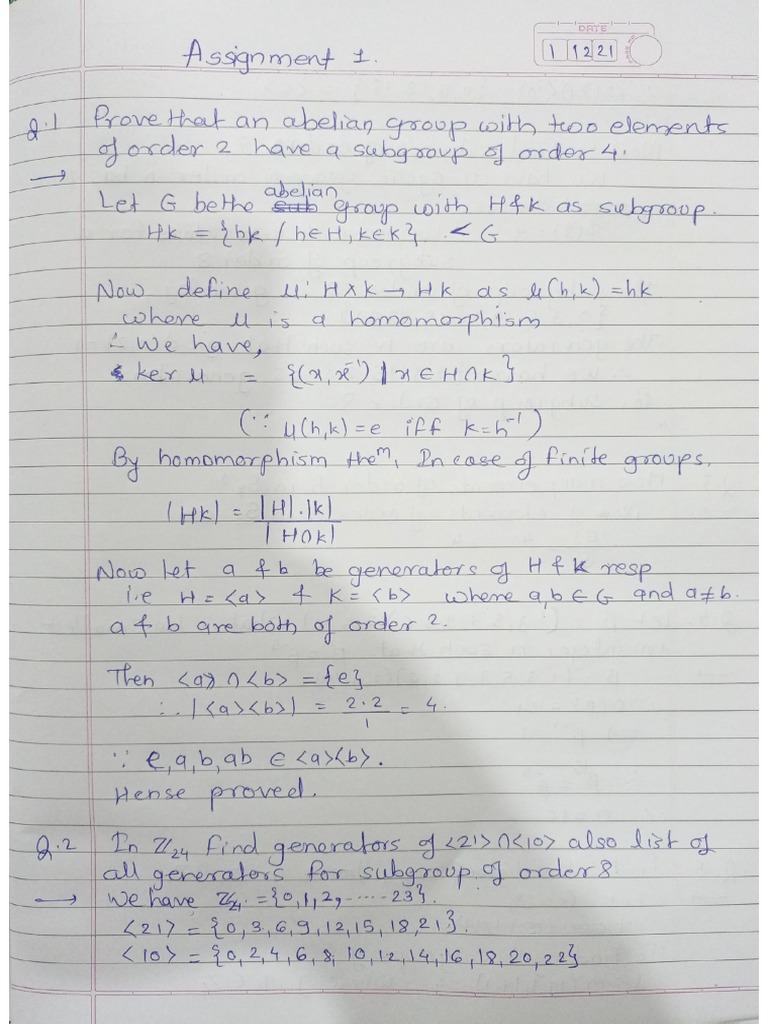 Assignment 1.
DATE
1 12 21
Q.1 Prove that an abelian group with two elements
of order 2 have a subgroup of order 4.
→
abelian
Let G be the group with H & K as subgroup.
HK = {hk / h∈H, k∈K} < G
Now define μ: H×K → HK as μ(h,k) = hk
where μ is a homomorphism
∴ We have,
ker μ = {(x, x⁻¹) | x ∈ H∩K}
(∵ μ(h,k) = e iff k = h⁻¹)
By homomorphism theᵐ, In case of finite groups,
|HK| = |H|.|K|
|H∩K|
Now let a & b be generators of H & K resp
i.e H = <a> & K = <b> where a,b ∈ G and a≠b.
a & b are both of order 2.
Then <a> ∩ <b> = {e}
∴ |<a><b>| = 2·2 = 4.
1
∵ e,a,b,ab ∈ <a><b>.
Hense proved.
Q.2 In ℤ24 find generators of <21>∩<10> also list of
all generators for subgroup of order 8
→ We have ℤ24 = {0,1,2,-....23}.
<21> = {0,3,6,9,12,15,18,21}.
<10> = {0,2,4,6,8,10,12,14,16,18,20,22}